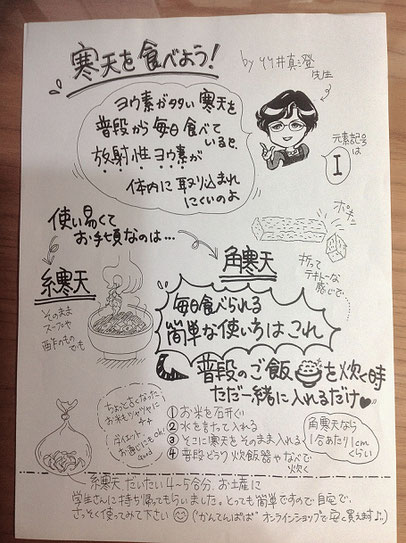 寒天を食べよう!
by 竹井真澄
先生
ヨウ素が多い寒天を
普段から毎日食べて
いると、
放射性ヨウ素が
体内に取り込まれ
にくいのよ
元素記号
は
I
使い易くて
お手頃なのは…
ポキ
折って
テキトーな
感じで
糸寒天
そのまま
スープや
酢のもの
でも
角寒天
毎日食べられる
簡単な使いみちはこれ
普段のご飯を炊く時
ただ一緒に入れるだけ♥
ちょっと古くなった
お米もツヤツヤに
ダイエット
お通じにもOK!
Good
①お米を研ぐ
②水を計って入れる
③そこに寒天をそのまま入れる
④普段どうり炊飯器やなべで
炊く
角寒天なら
1合あたり1cm
くらい
糸寒天 だいたい4~5合分、お土産に
学生さんに持ち帰ってもらいました。とっても簡単ですので自宅で、
さっそく使ってみて下さい😊("かんてんぱぱ"オンラインショップで安く買えます♪)